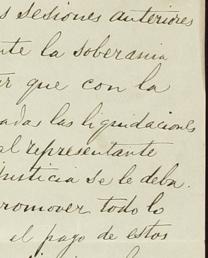 s sesiones anteriores
nte la soberania
ar que con la
adas las liquidaciones
al representante
justicia se le deba.
promover todo lo
el pago de estos